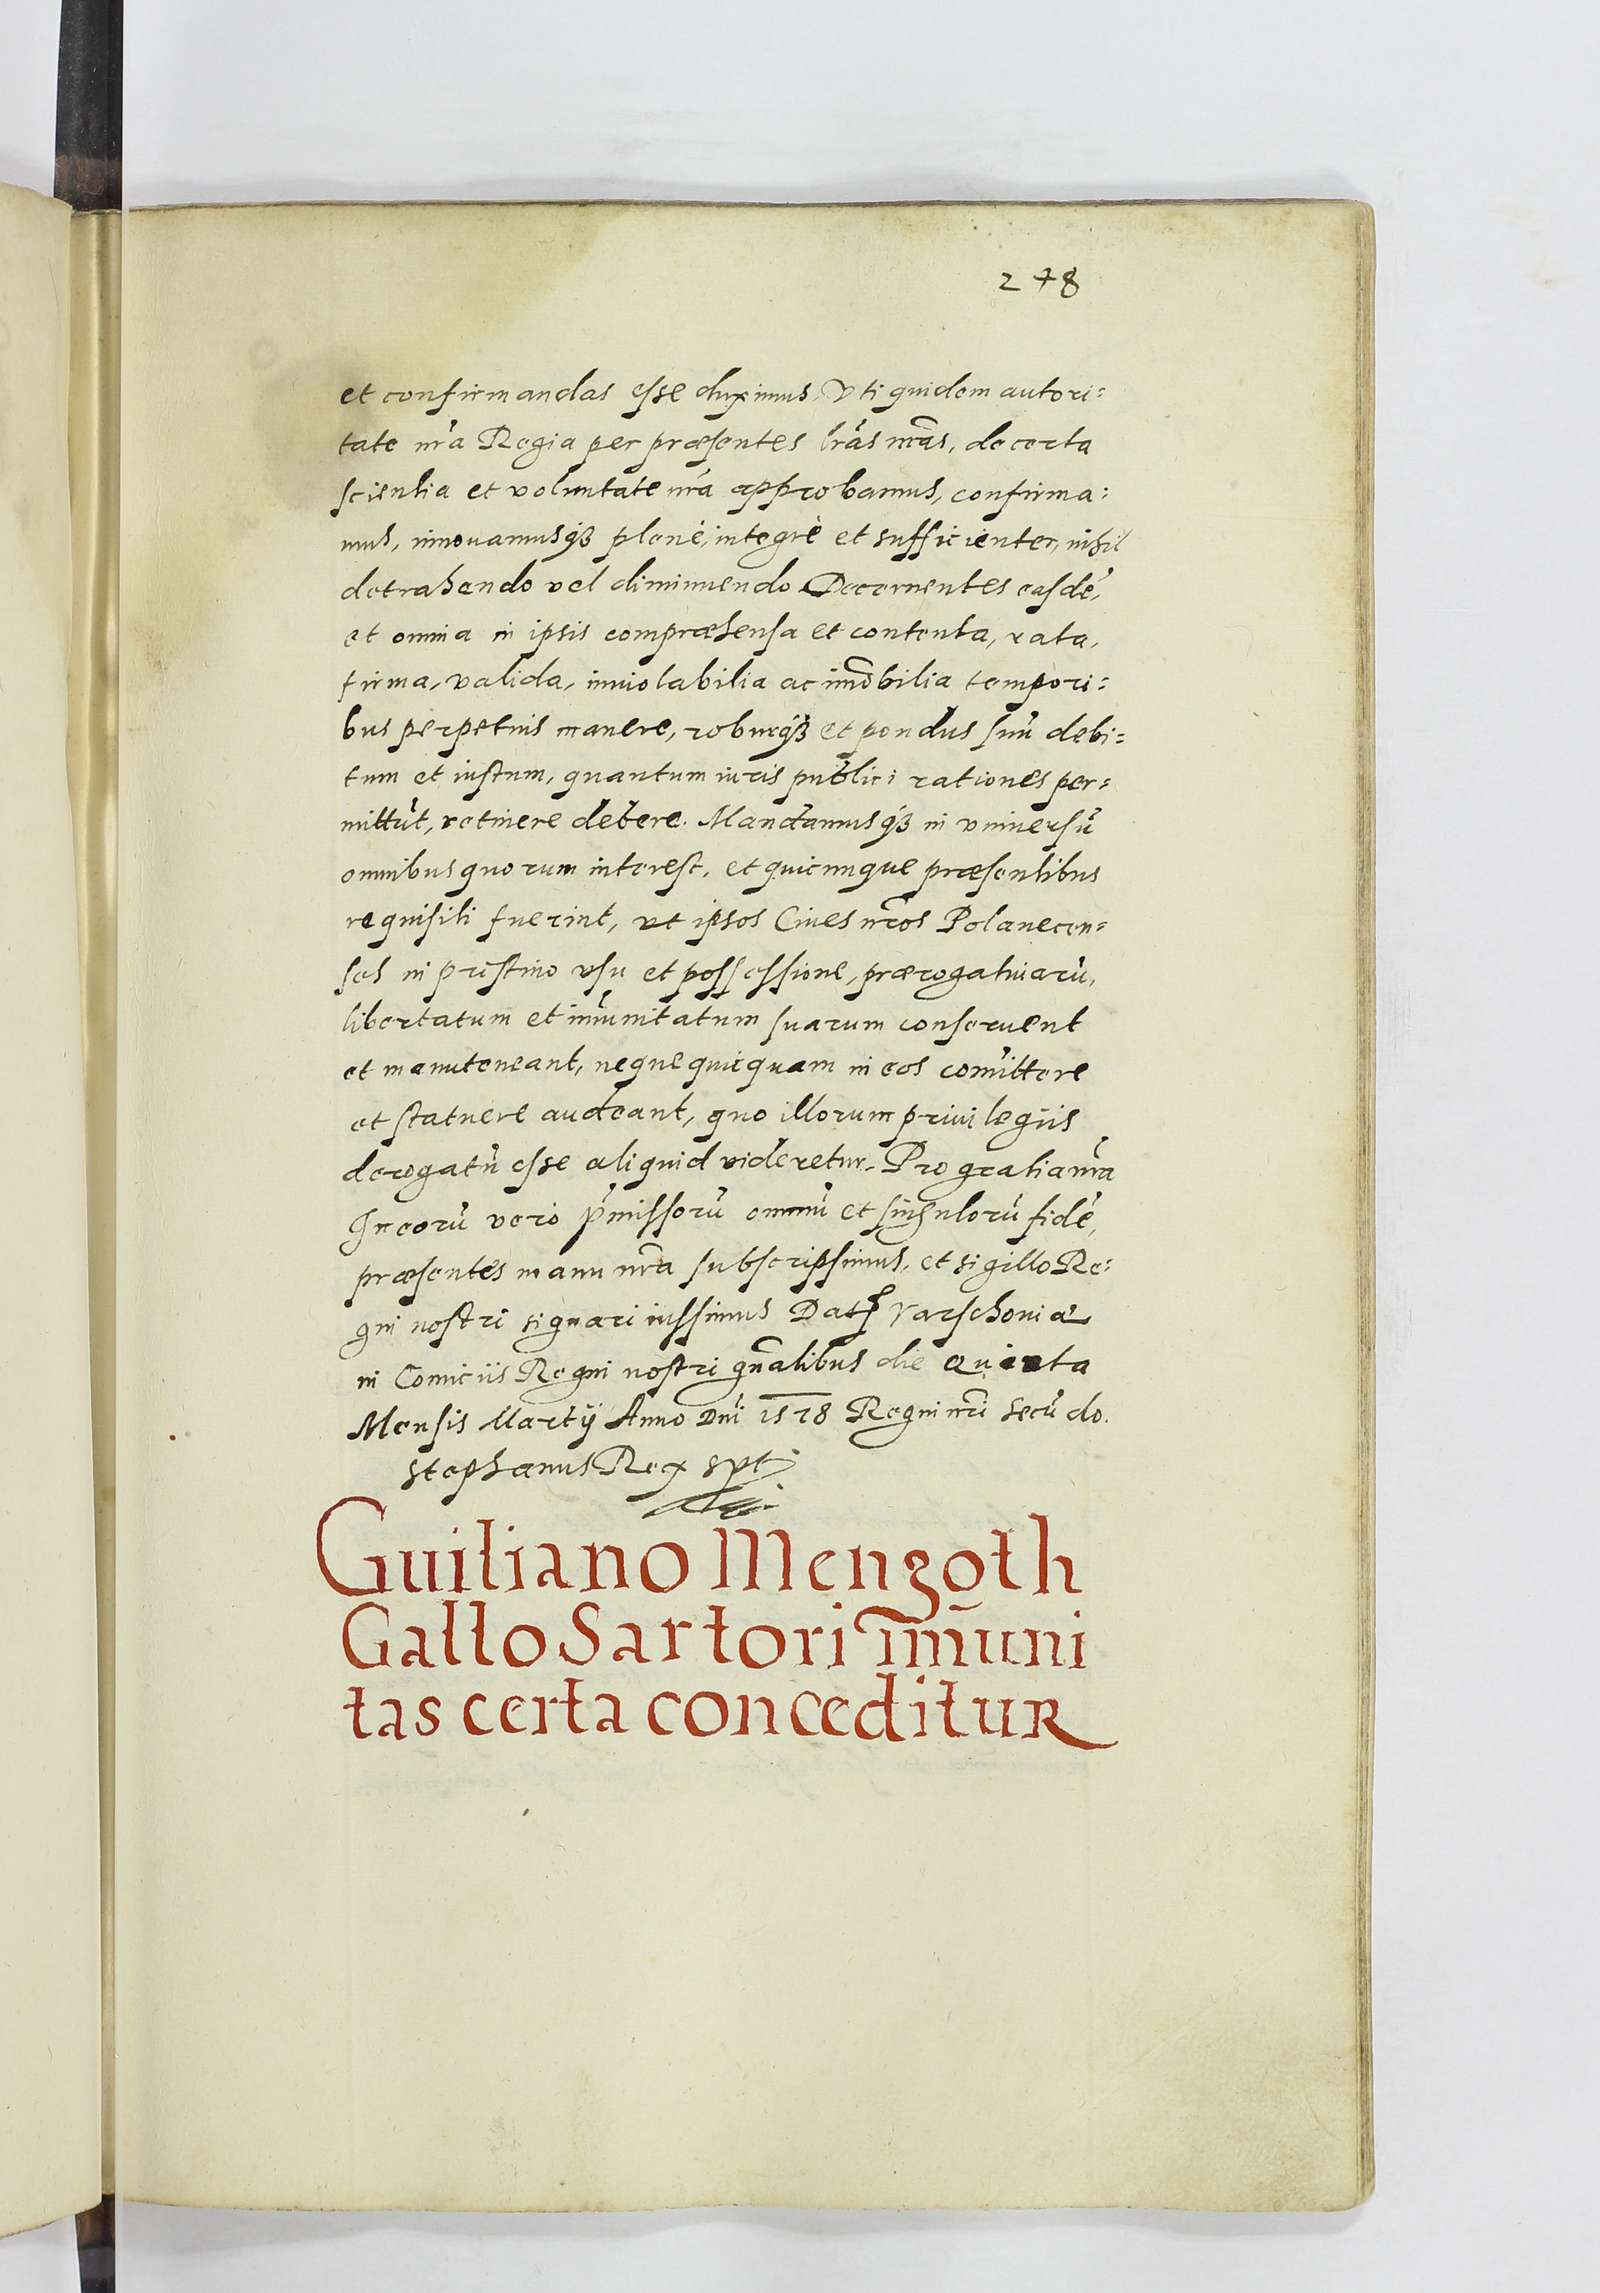 278
et confirmandas esse duximus, Vti quidem autori=
tate nrã Regia per præsentes lrãs nrãs, de certa
scientia et voluntate nrã approbamus, confirma=
mus, innouamusqꝫ plenè, integrè et sufficienter, nihil
detrahendo vel diminuendo Decernentes easdẽ,
et omnia in ipsis compræhensa et contenta, rata,
firma, valida, inuiolabilia ac im̃obilia tempori=
bus perpetuis manere, roburqꝫ et pondus suũ debi=
tum et iustum, quantum iuris publici rationes per=
mittũt, retinere debere. Mandamusqꝫ in vniuersũ
omnibus quorum interest, et quicunque præsentibus
requisiti fuerint, vt ipsos Ciues nrõs Polanecen=
ses in pristino vsu et possessione, prærogatiuarũ,
libertatum et im̃unitatum suarum conseruent
et manuteneant, neque quicquam in eos com̃ittere
et statuere audeant, quo illorum priuilegiis
derogatũ esse aliquid videretur. Pro gratia nrã
In eorũ vero p̃missorũ omniũ et singulorũ fidẽ,
præsentes manu nrã subscripsimus, et sigillo Re=
gni nostri signari iussimus Datꝭ Varschouiæ
in Comiciis Regni nostri gñalibus die quinta
Mensis Martij Anno Dñi 1578 Regni nrĩ secũdo.
Stephanus Rex spt
Guiliano Mengoth
Gallo Sartori im̃uni
tas certa conceditur